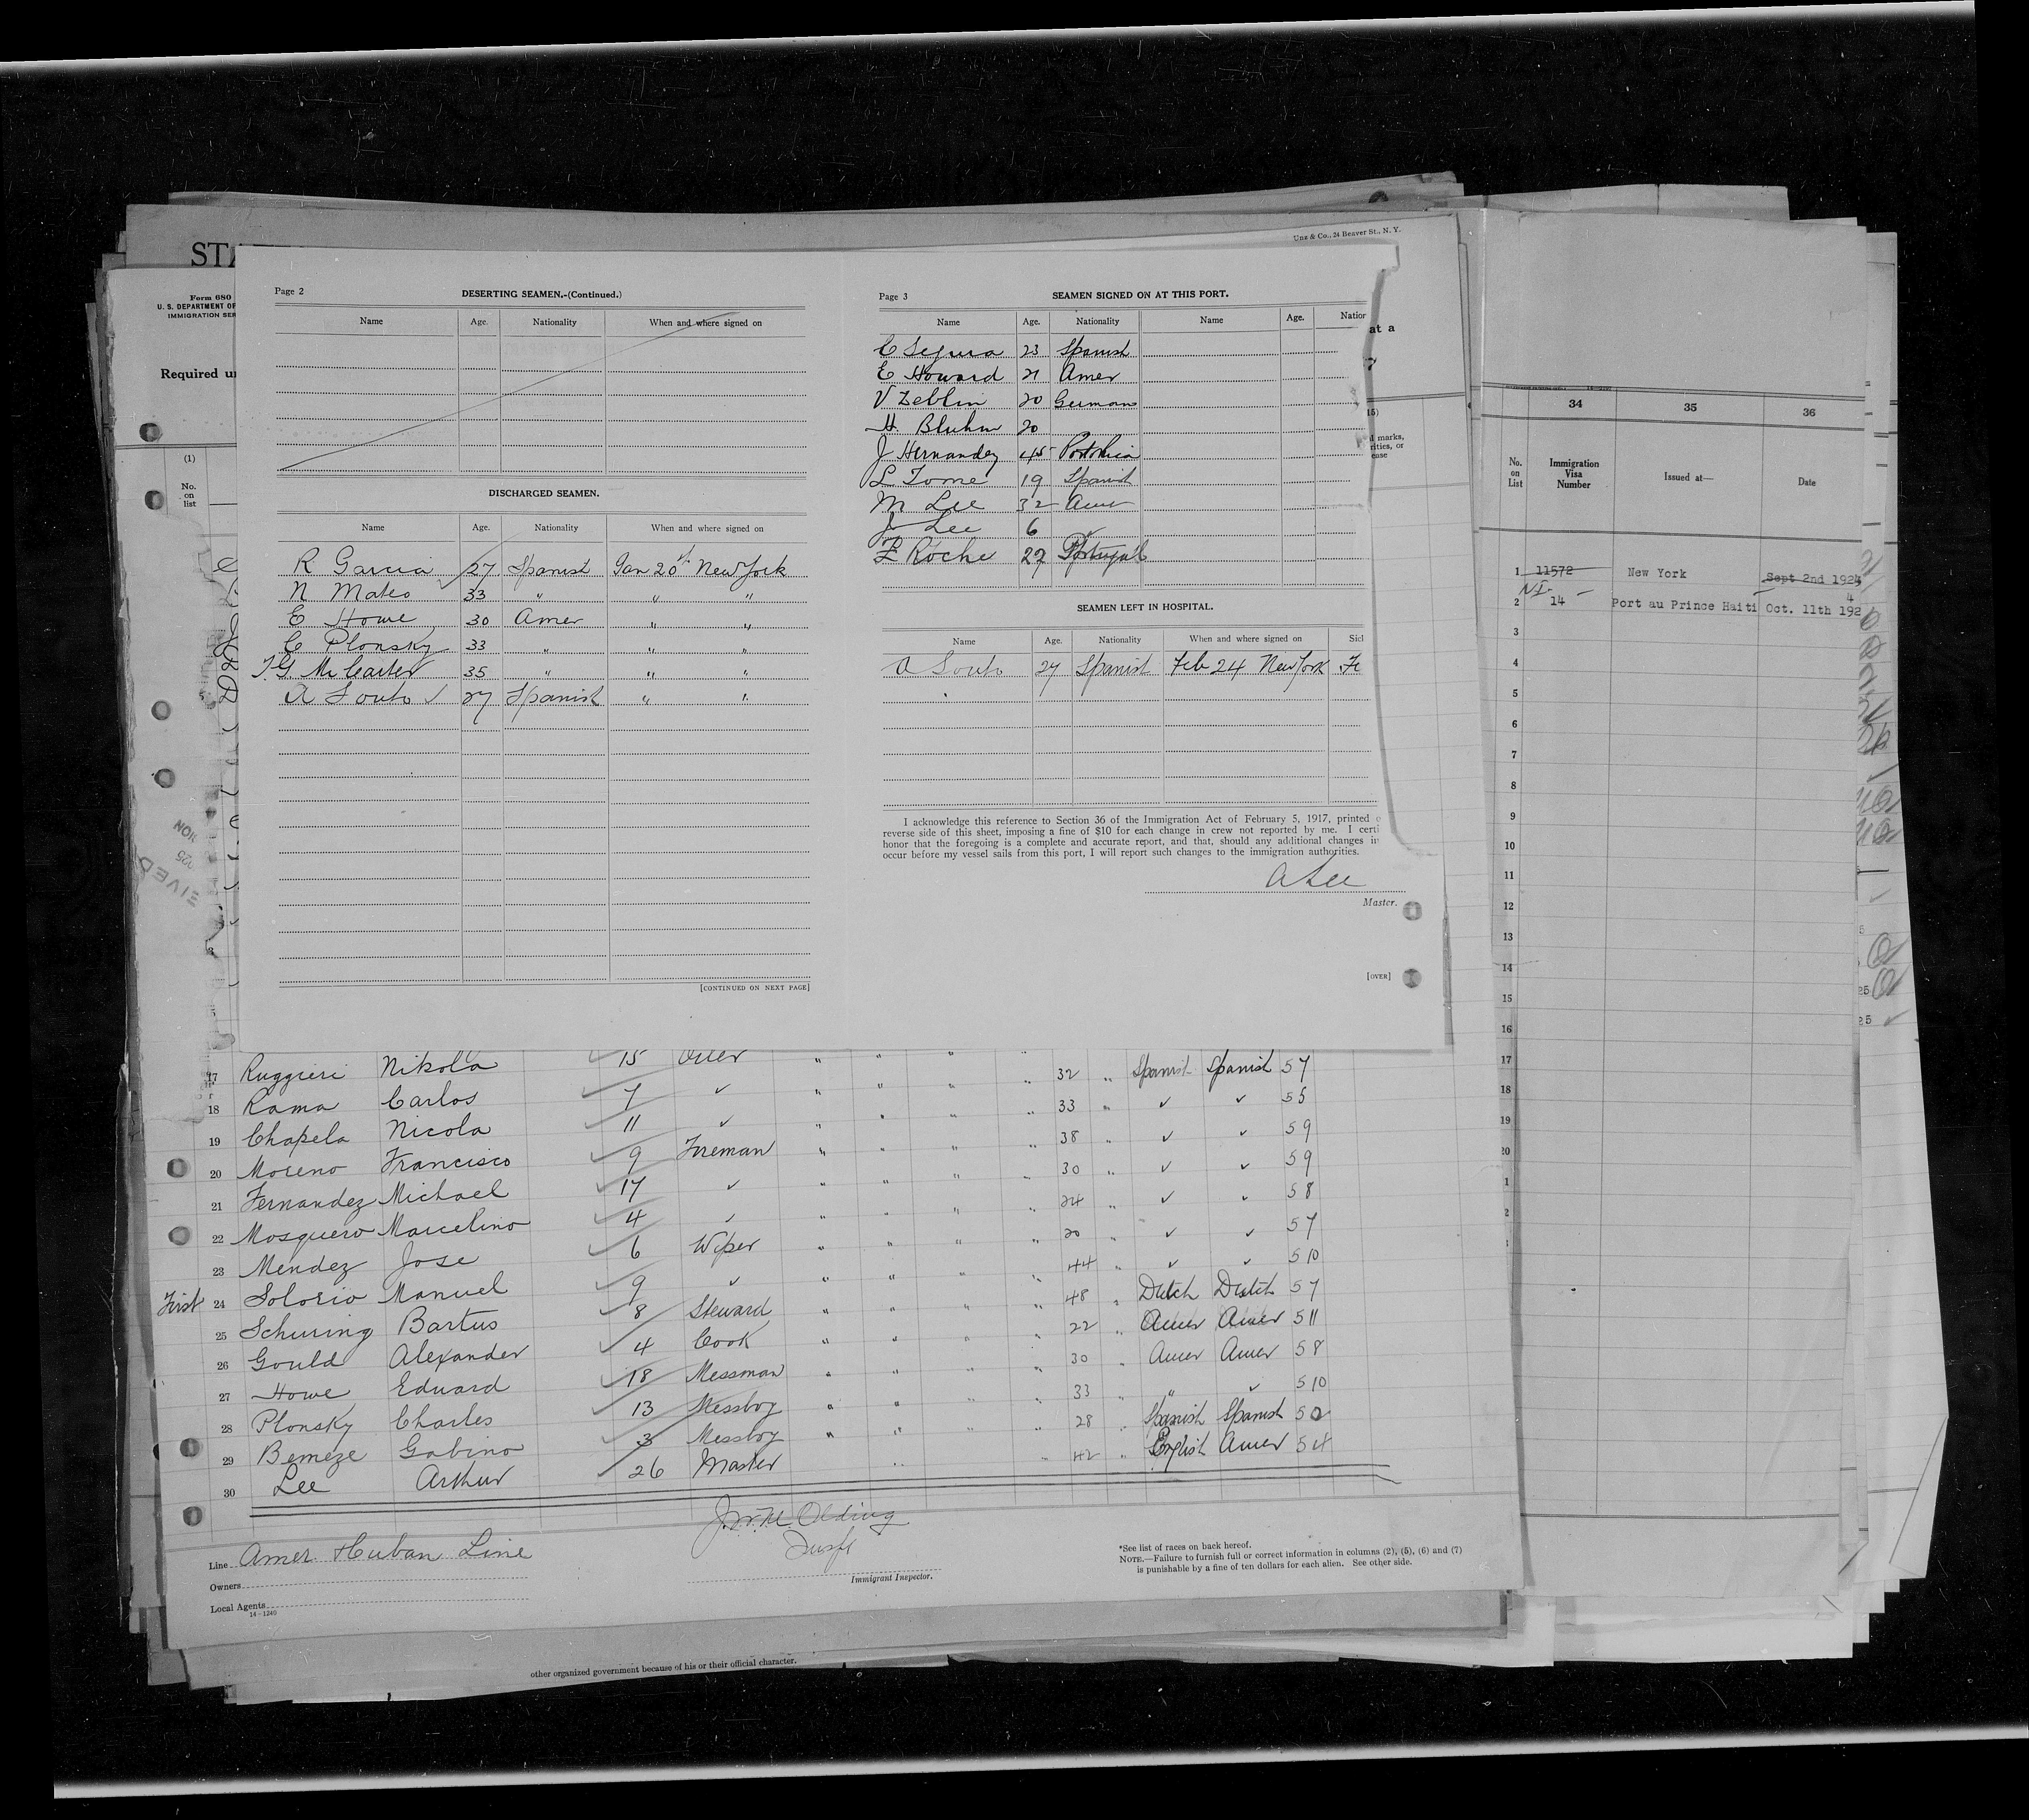 Unz & Co., 24 Beaver St., N. Y.
STA
Form 680
U. S. DEPARTMENT OF
IMMIGRATION SER
Required u
(1)
No.
on
list
Page 2
DESERTING SEAMEN.-(Continued.)
Name Age. Nationality When and where signed on
DISCHARGED SEAMEN.
Name Age. Nationality When and where signed on
R Garcia 27 Spanish Jan 20th New York
N Mateo 33 " " "
E Howe 30 Amer " "
C Plonsky 33 " " "
T.G. McCarter 35 " " "
A Souto 27 Spanish " "
[CONTINUED ON NEXT PAGE]
Page 3
SEAMEN SIGNED ON AT THIS PORT.
Name Age. Nationality Name Age. Nation
C Segura 23 Spanish
E Howard 21 Amer
V Zeblin 20 German
H. Bluhm 20
J Hernandez 45 Porto Rico
L Tome 19 Spanish
M Lee 32 Amer
J Lee 6
F Roche 27 Portugal
SEAMEN LEFT IN HOSPITAL.
Name Age. Nationality When and where signed on Sic
A Souto 27 Spanish Feb 24 New York Fe
I acknowledge this reference to Section 36 of the Immigration Act of February 5, 1917, printed o
reverse side of this sheet, imposing a fine of $10 for each change in crew not reported by me. I certi
honor that the foregoing is a complete and accurate report, and that, should any additional changes in
occur before my vessel sails from this port, I will report such changes to the immigration authorities.
A Lee
Master.
[OVER]
at a
marks,
ease
34 35 36
No.
on
List
Immigration
Visa
Number
Issued at—
Date
1 11572 New York Sept 2nd 1924
2 NI- 14 Port au Prince Haiti Oct. 11th 1924
3
4
5
6
7
8
9
10
11
12
13
14
15
16
17
18
19
20
1
2
EIVED
17 Ruggieri Nikola 15 Oiler " " " " 32 " Spanish Spanish 57
18 Rama Carlos 7 ✓ " " " " 33 " ✓ ✓ 55
19 Chapela Nicola 11 ✓ " " " " 38 " ✓ ✓ 59
20 Moreno Francisco 9 Fireman " " " " 30 " ✓ ✓ 59
21 Fernandez Michael 17 ✓ " " " " 24 " ✓ ✓ 58
22 Mosquero Marcelino 4 ✓ " " " " 20 " ✓ ✓ 57
23 Mendez Jose 6 Wiper " " " " 44 " ✓ ✓ 510
First 24 Solorio Manuel 9 ✓ " " " " 48 " Dutch Dutch 57
25 Schuring Bartus 8 Steward " " " " 22 " Amer Amer 511
26 Gould Alexander 4 Cook " " " " 30 " Amer Amer 58
27 Howe Eduard 18 Messman " " " " 33 " " ✓ 510
28 Plonsky Charles 13 Messboy " " " " 28 " Spanish Spanish 52
29 Bemeze Gabino 3 Messboy " " " " 42 " English Amer 54
30 Lee Arthur 26 Master
Line Amer Cuban Line
Owners
Local Agents
14-1240
Immigrant Inspector.
*See list of races on back hereof.
NOTE.—Failure to furnish full or correct information in columns (2), (5), (6) and (7)
is punishable by a fine of ten dollars for each alien. See other side.
other organized government because of his or their official character.